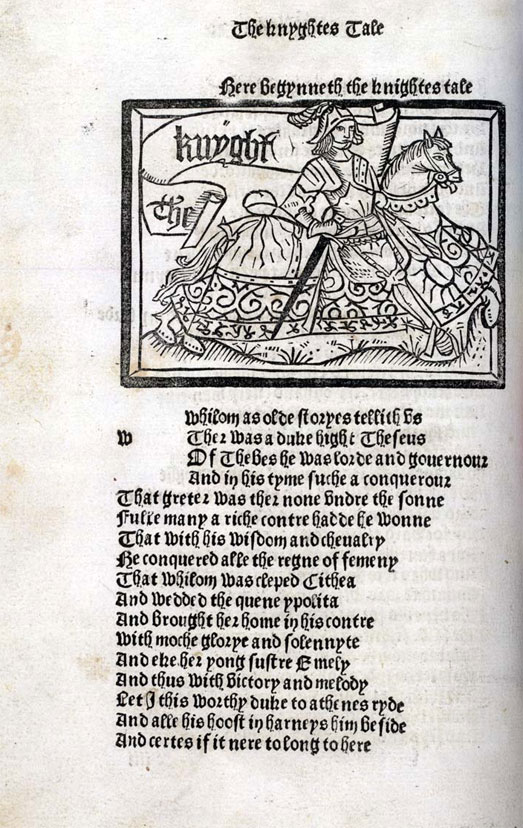 The knyghtes Tale
Here begynneth the knightes tale
The knyght
w
whilom as olde storyes tellith vs
Ther was a duke hight Theseus
Of Thebes he was lorde and gouernour
And in his tyme suche a conquerour
That greter was ther none vndre the sonne
Fulle many a riche contre hadde he wonne
That with his wisdom and cheualry
He conquered alle the regne of femeny
That whilom was cleped Cithea
And wedded the quene ypolita
And brought her home in his contre
With moche glorye and solennyte
And eke her yong sustre Emely
And thus with victory and melody
Let I this worthy duke to athenes ryde
And alle his hoost in harneys him beside
And certes if it nere to long to here